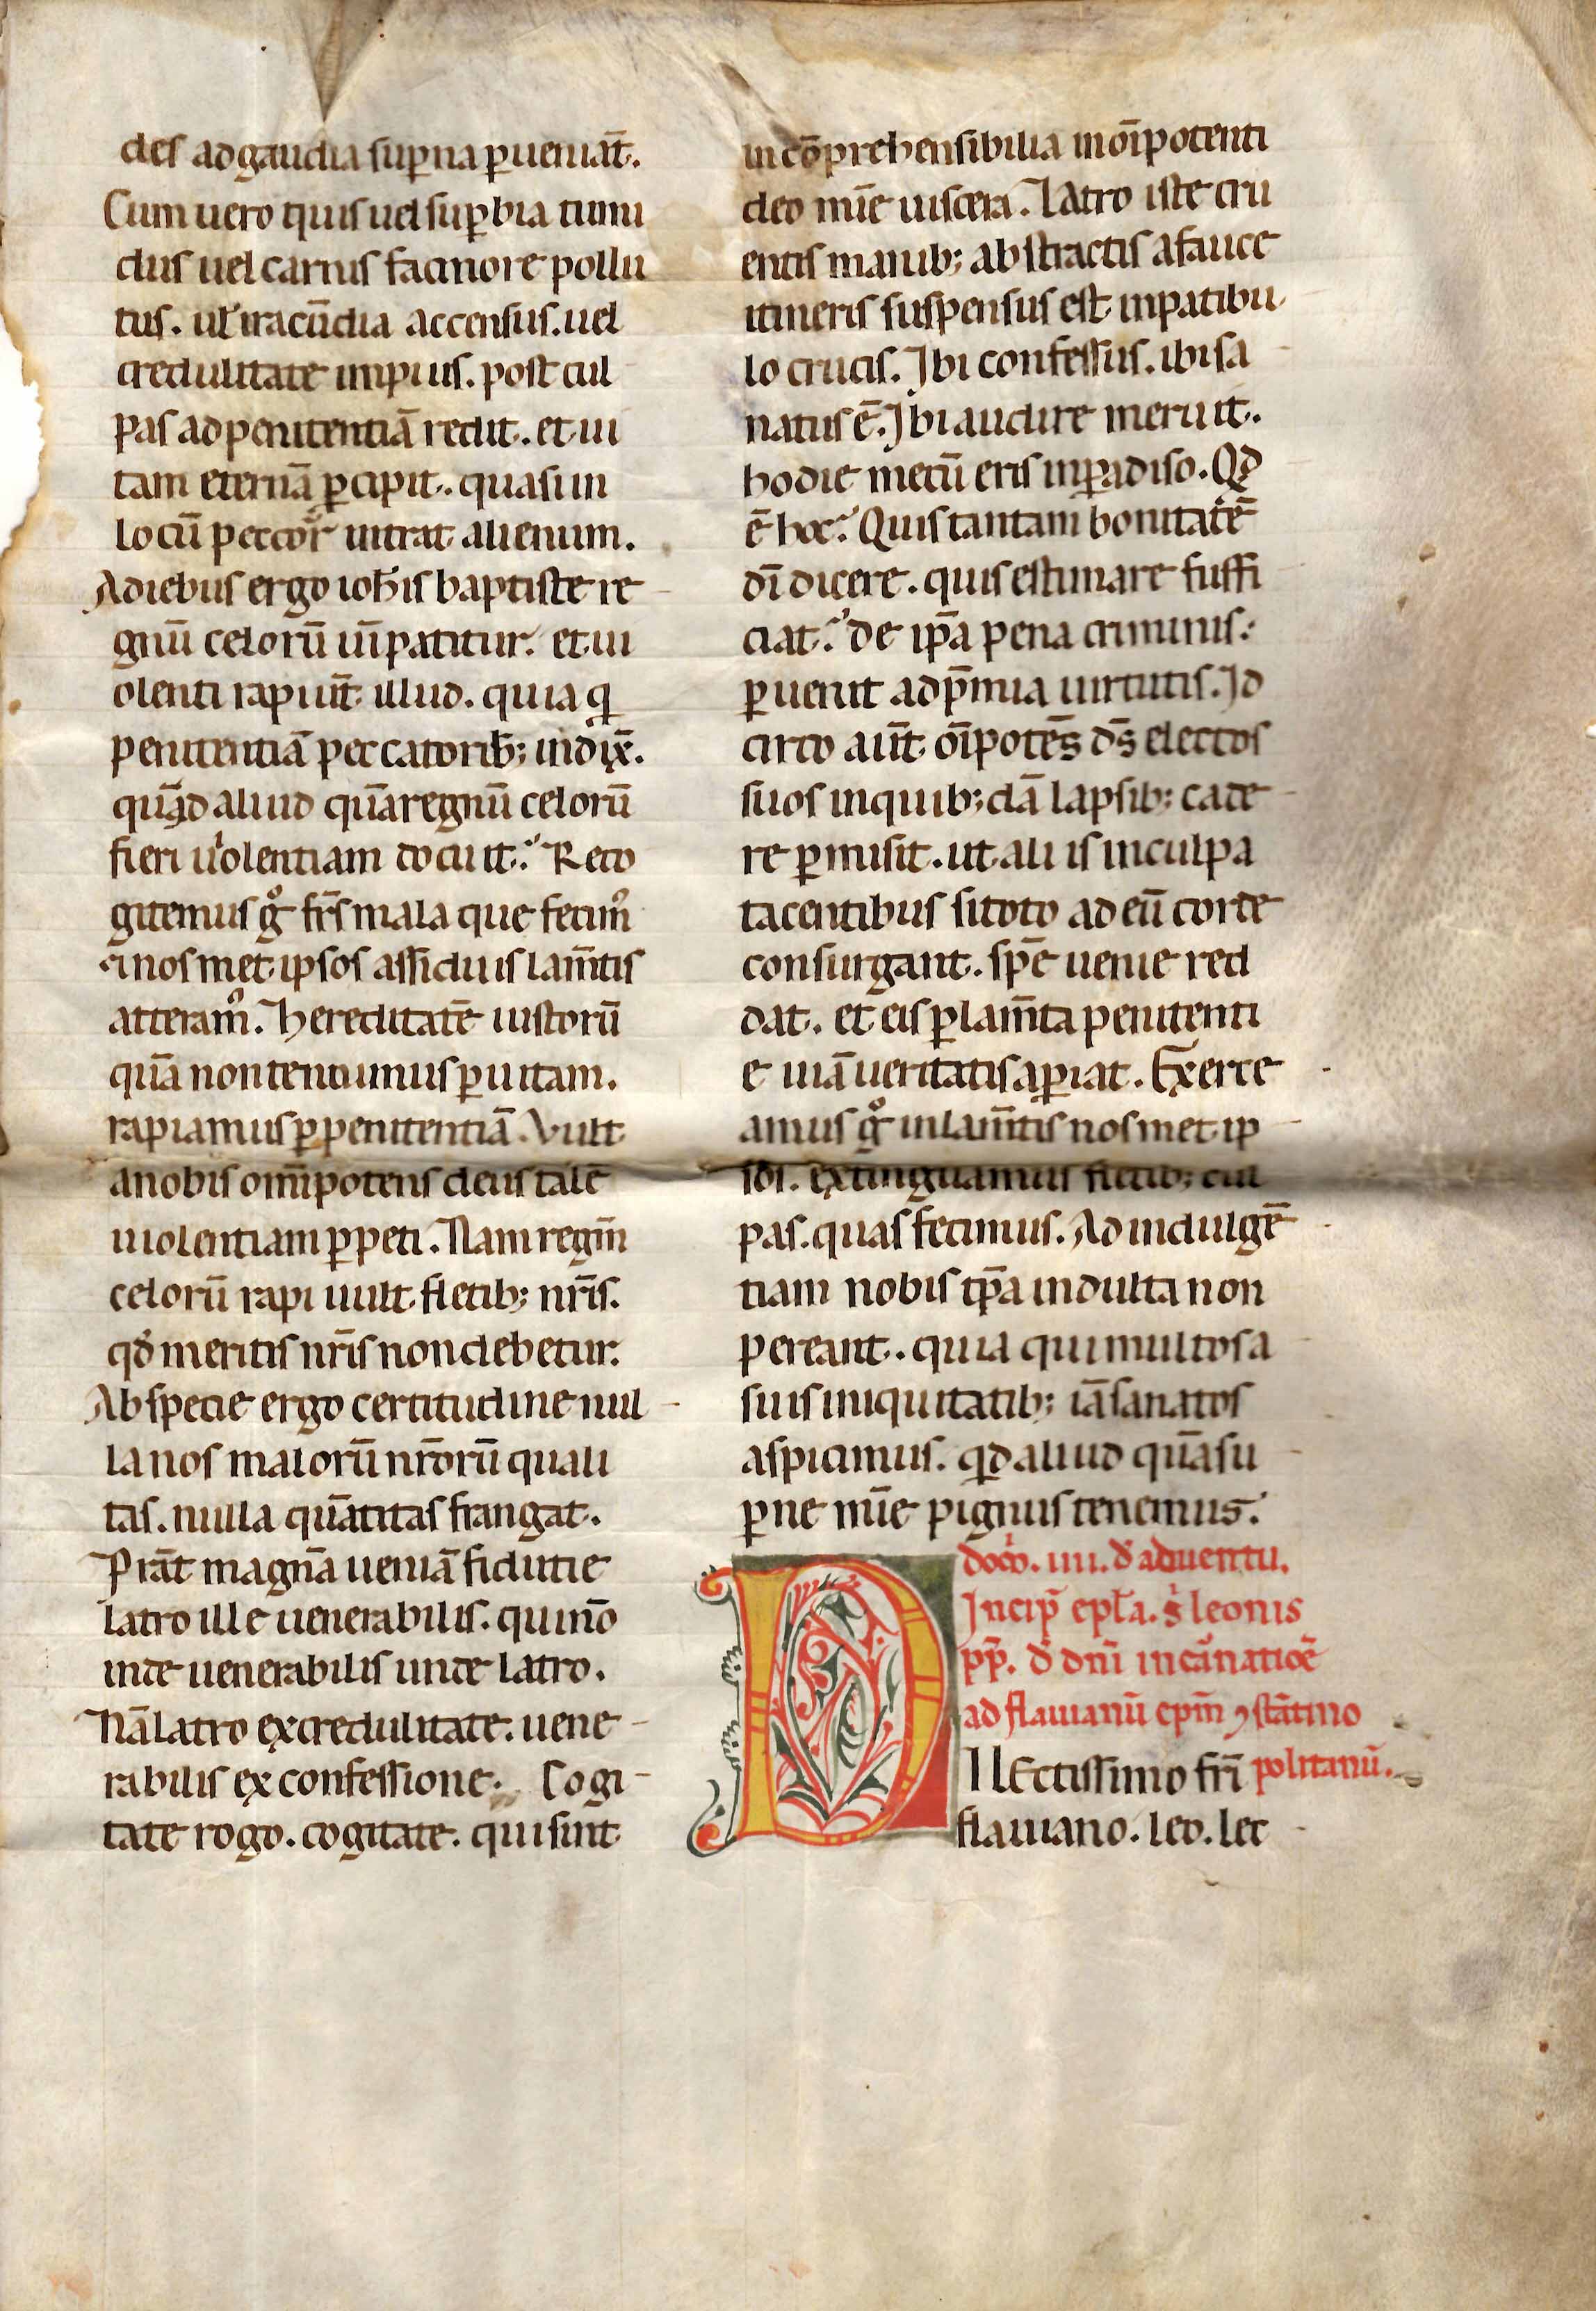 des ad gaudia sup̲na p̲ueniat̄.
Cum uero quis uel sup̲bia tumi
dus uel carnis facinore pollu
tus. ul̕ iracūdia accensus. uel
credulitate impius. post cul
pas ad penitentiā redit. et ui
tam eternā p̲cipit. quasi in
locū peccor̕ intrat alienum.
A diebus ergo ioh̄is baptiste re
gnū celorū uim̄ patitur. et ui
olenti rapiūt illud. quia q̲i
penitentiā peccatorib; indix̄.
quid aliud quā regnū celorū
fieri uiolentiam docuit? Reco
gitemus g̊ fr̄s mala que fecim᷒
⁊ nosmet ipsos assiduis lam̄tis
atteram᷒. hereditatē iustorū
quā non tenuimus p̲ uitam.
rapiamus p̲ penitentiā. Vult
a nobis om̄ipotens deus talē
uiolentiam p̲peti. Nam regnū
celorū rapi uult fletib; nr̄is.
qđ meritis nr̄is non debetur.
Ab specie ergo certitudine nul
la nos malorū nr̄orū quali
tas. nulla quātitas frangat.
Prāt magnā ueniā fidutie
latro ille uenerabilis. qui nō
inde uenerabilis unde latro.
Nā latro ex credulitate. uene
rabilis ex confessione. Cogi
tate rogo. cogitate. qui sint
incōprehensibilia in oīpotenti
deo mīe uiscera. Latro iste cru
entis manib; abstractis a fauce
itineris suspensus est in patibu
lo crucis. Ibi confessus. ibi sa
natus ē. Ibi audire meruit.
hodie mecū eris in paradiso. Qd
ē hoc? Quis tantam bonitatē
dī dicere. quis estimare suffi
ciat? de ip̄a pena criminis.
p̲uenit ad p̄mia uirtutis. Id
circo aūt oīpotēs d̄s electos
suos in quib;dā lapsib; cade
re p̲misit. ut aliis in culpa
iacentibus si toto ad eū corde
consurgant. spē uenie red
dat. et eis p̲ lam̄ta penitenti
e uiā ueritatis ap̲iat. Exerce
amus g̊ in lam̄tis nosmet ip
sos. extinguamus fletib; cul
pas. quas fecimus. Ad indulgē
tiam nobis tp̄a indulta non
pereant. quia qui multos a
suis iniquitatib; iā sanatos
aspicimus. qid aliud quā su
p̲ne mīe pignus tenemus.
doc̄o. iiii. d̕ aduentu.
Incip̄ epl̄a. s̄ leonis
pp̄. d̕ dn̄i incarnatiōe
ad flauianū epm̄ ꝯstātino
politanū.
DILEctissimo fr̄i
flauiano. leo. lec